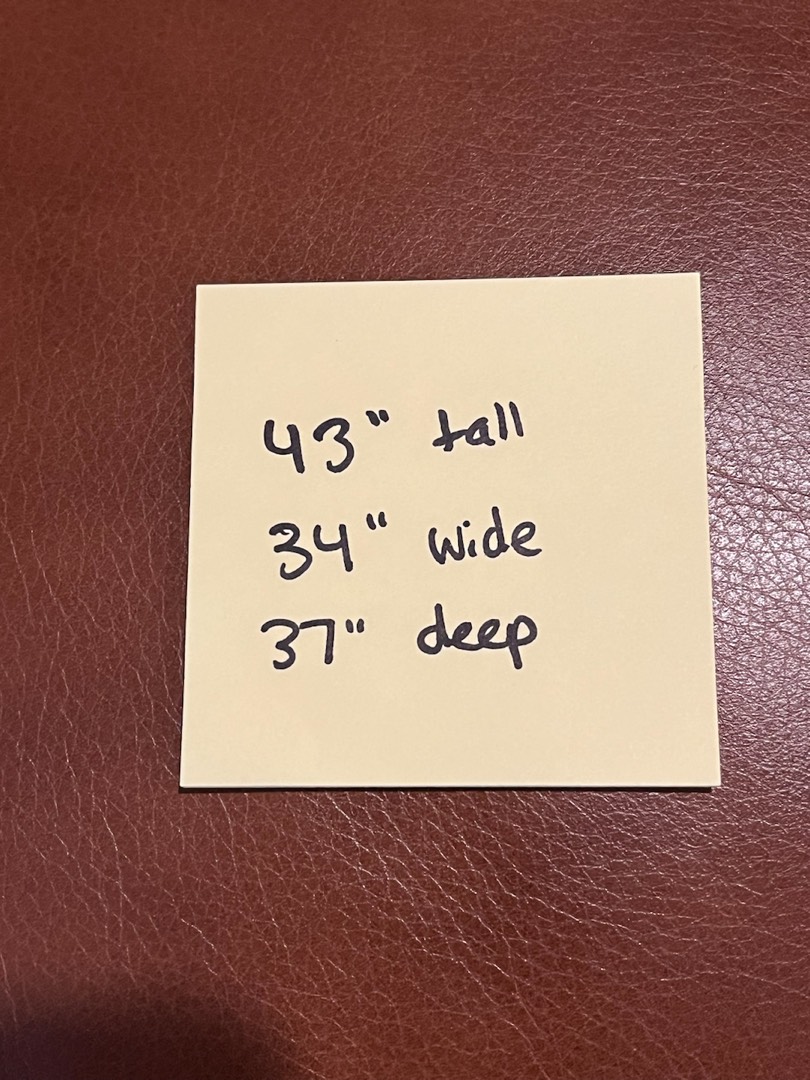 43" tall
34" wide
37" deep